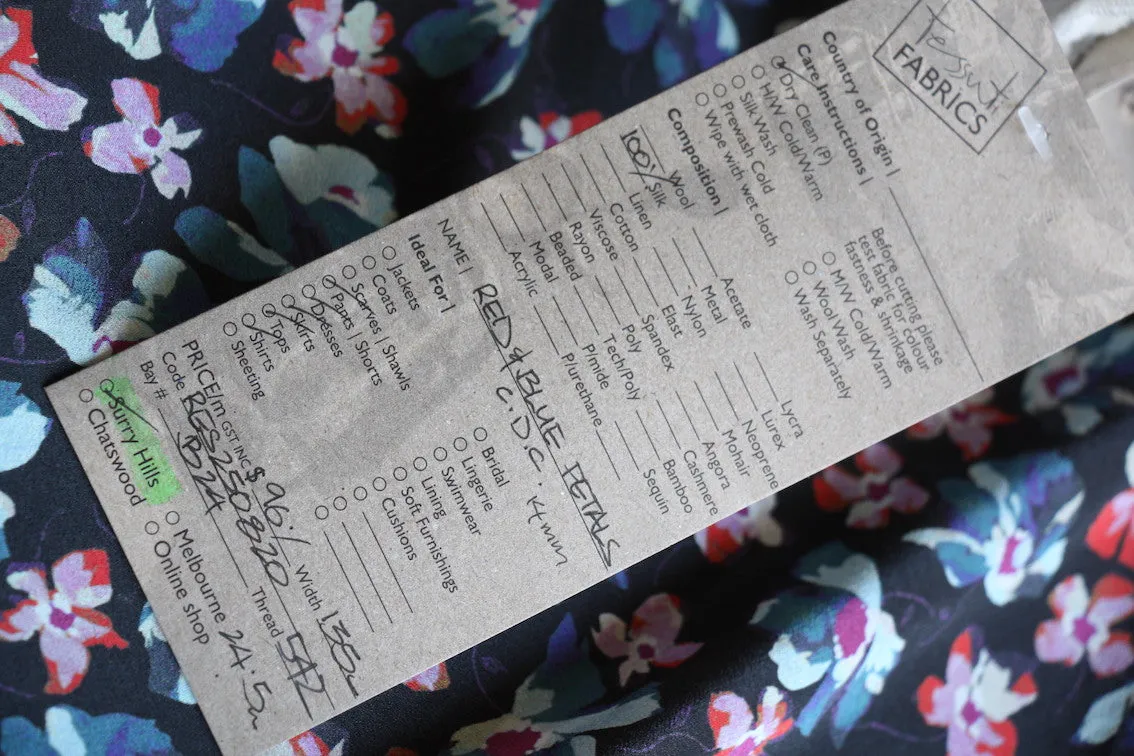 Tessuti
FABRICS
Country of Origin |
Care Instructions |
Dry Clean (P)
H/W Cold/Warm
Silk Wash
Prewash Cold
Wipe with wet cloth
Before cutting please
test fabric for colour
fastness & shrinkage
M/W Cold/Warm
Wool Wash
Wash Separately
Composition |
Wool
100% Silk
Linen
Cotton
Viscose
Rayon
Beaded
Modal
Acrylic
Acetate
Metal
Nylon
Elast
Spandex
Poly
Tech/Poly
P/mide
P/urethane
Lycra
Lurex
Neoprene
Mohair
Angora
Cashmere
Bamboo
Sequin
NAME | RED & BLUE PETALS
C.D.C. 14mm
Ideal For |
Jackets
Coats
Scarves | Shawls
Pants | Shorts
Dresses
Skirts
Tops
Shirts
Sheeting
Bridal
Lingerie
Swimwear
Lining
Soft Furnishings
Cushions
PRICE/m GST INC $ 96./ Width 135c
Code RGS2250820 Thread
Bay # B24
Surry Hills
Chatswood
Melbourne
Online shop
24.5m